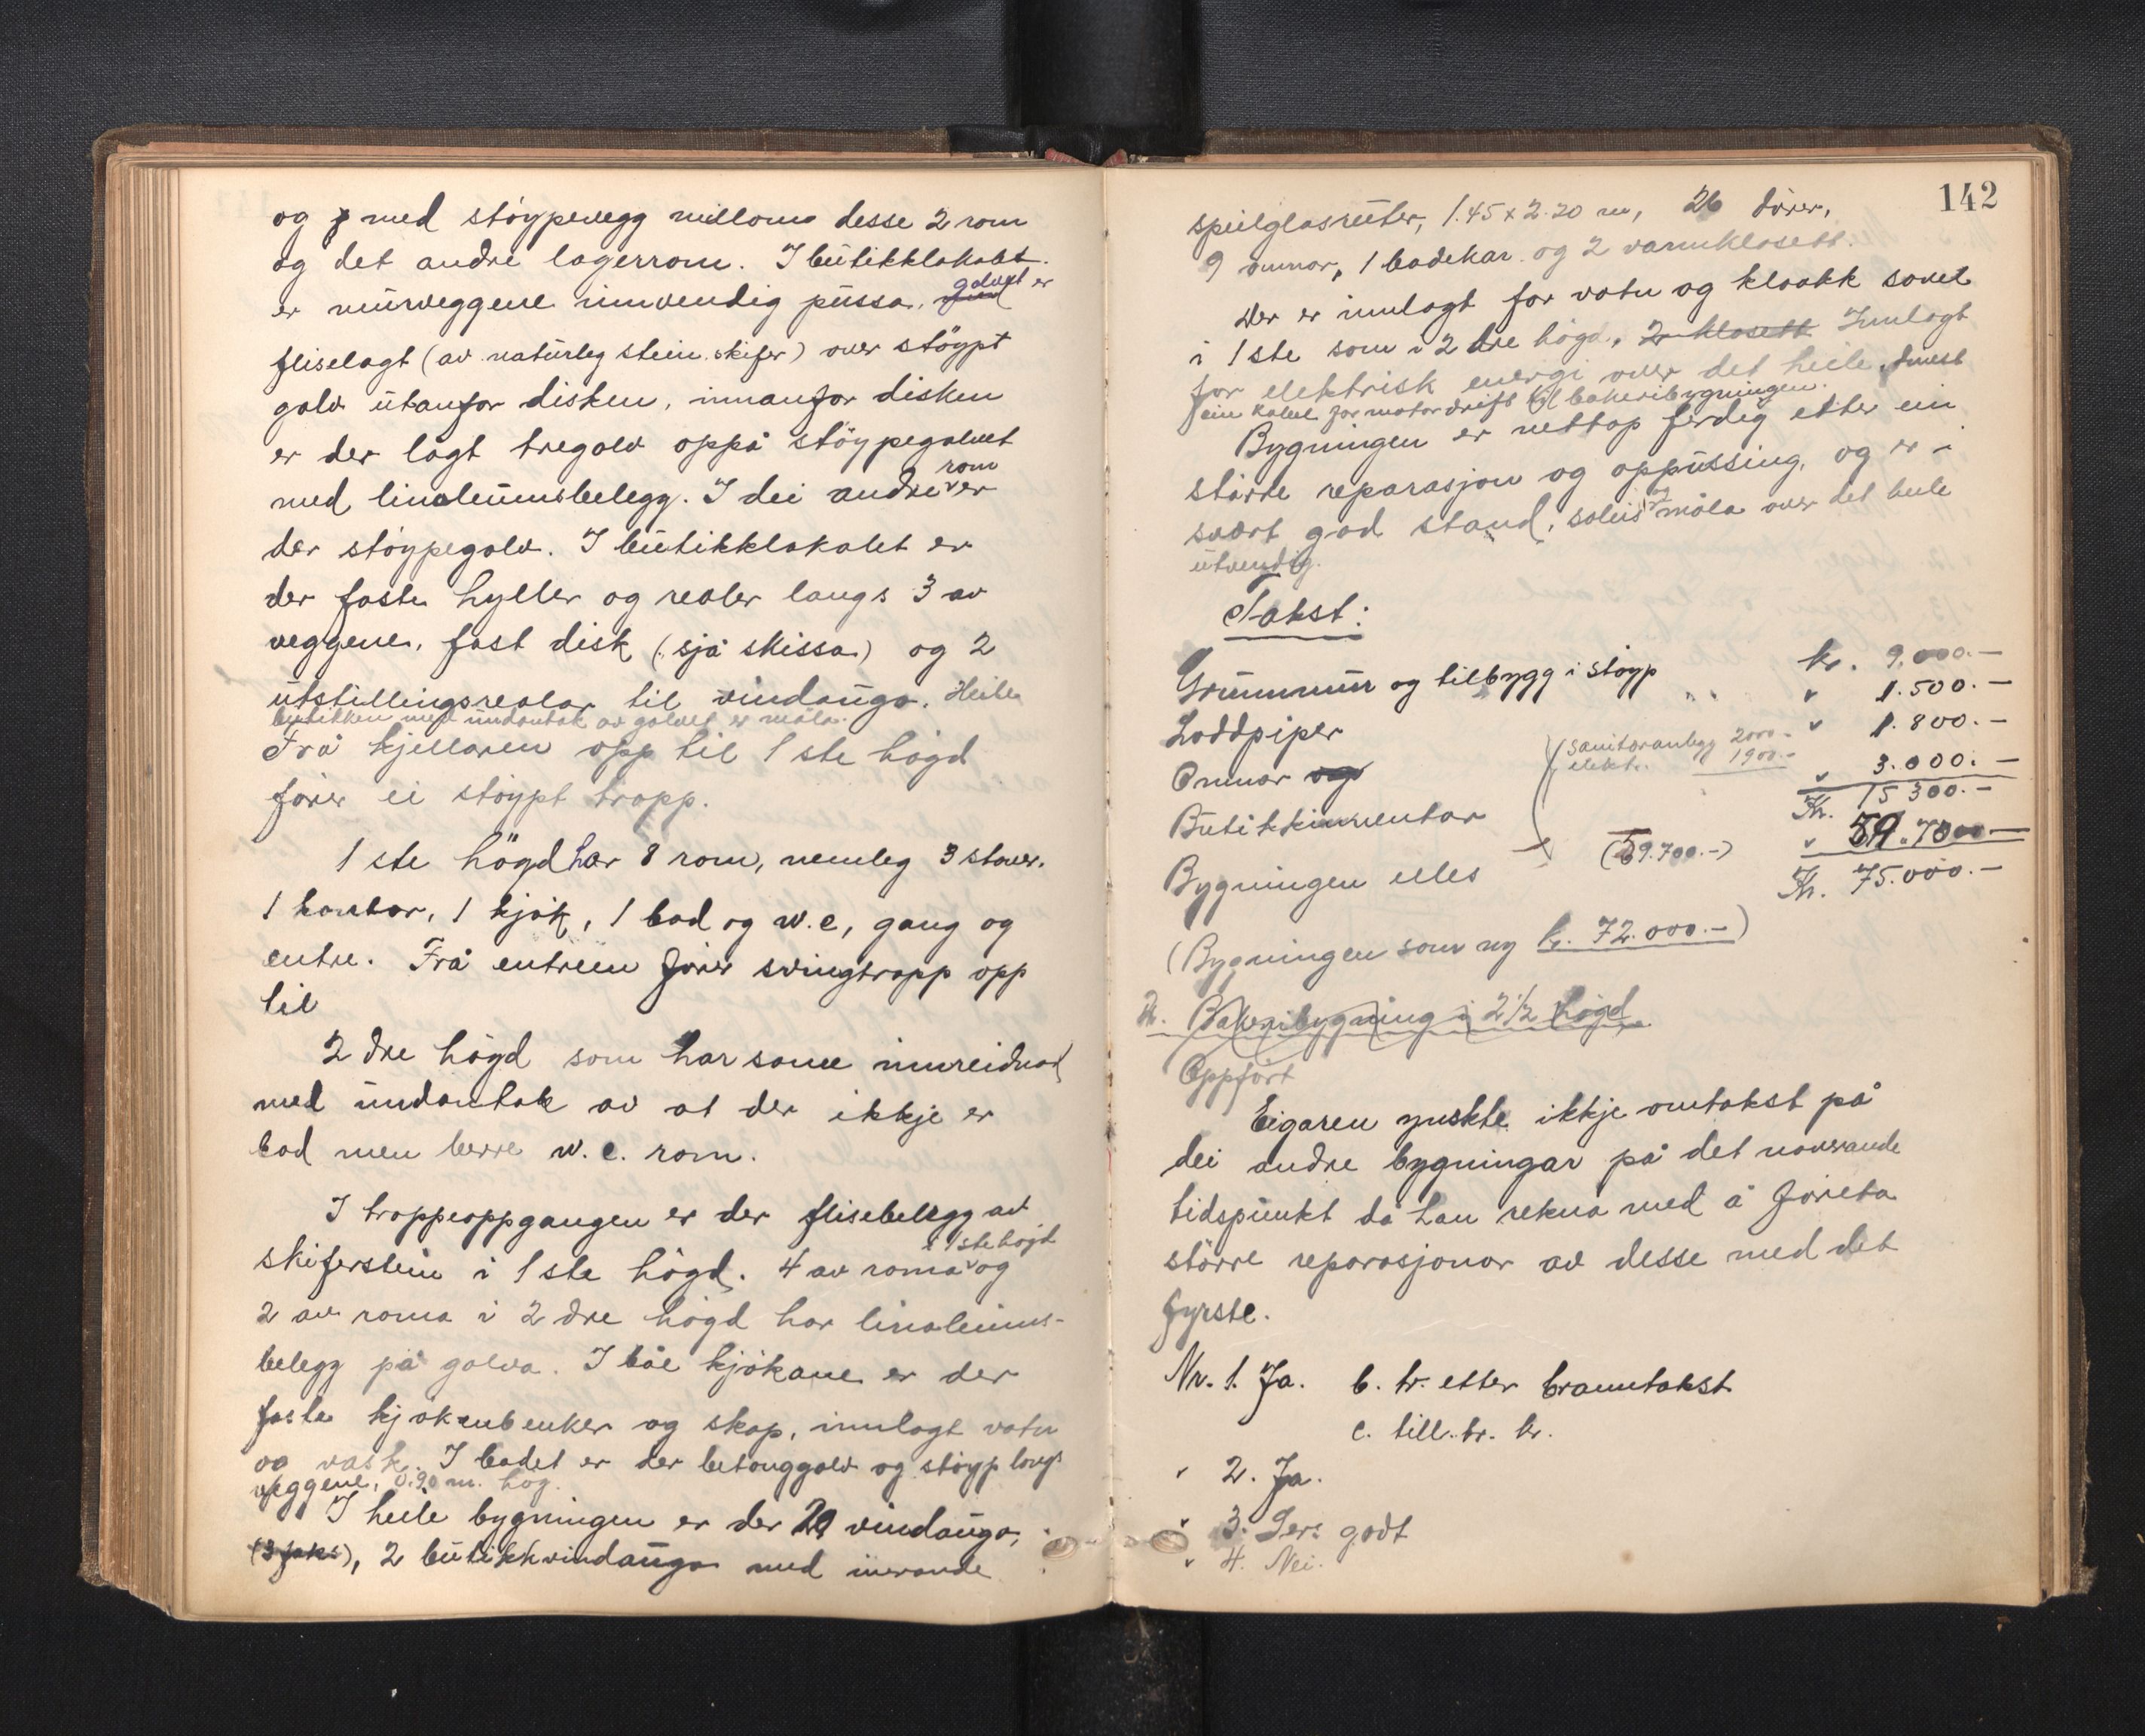 og med støypevegg millom desse 2 rom
og det andre lagerrom. I butikklokalet
er murveggene innvendig pussa, golvet er
fliselagt (av naturleg stein skifer) over støypt
golv utanfor disken, innanfor disken
er der lagt tregolv oppå støypegolvet
med linoleumsbelegg. I dei andre rom er
der støypegolv. I butikklokalet er
der faste hyller og reoler langs 3 av
veggene, fast disk (sjå skissa) og 2
utstillingsreolar til vindauga. Heile
butikken med undantak av golvet er måla.
Frå kjellaren opp til 1ste høgd
fører ei støypt tropp.
1ste høgd har 8 rom, nemleg 3 stover.
1 kontor, 1 kjøk, 1 bad og w.c, gang og
entre. Frå entreen fører svingtropp opp
til
2dre høgd som har same innreidnad
med undantak av at der ikkje er
bad men berre w.c. rom.
I troppeoppgangen er der flisebelegg av
skiferstein i 1ste høgd. 4 av roma i 1ste høgd og
2 av roma i 2dre høgd har linoleums-
belegg på golva. I båe kjøkane er der
faste kjøkenbenker og skap, innlagt vatn
og vask. I badet er der betonggolv og støyp langs
veggene, 0.90 m. høg.
I heile bygningen er der 29 vindauga,
(3 faks), 2 butikkvindauga med
142
speilglasruter, 1.45 x 2.20 m, 26 dører,
9 omnar, 1 badekar og 2 vannklosett.
Der er innlagt for vatn og kloakk sovel
i 1ste som i 2dre høgd, 2 klosett Innlagt
for elektrisk energi over det heile, dmest
ein kabel for motordrift til bakeribygningen.
Bygningen er nettop ferdig etter ein
større reparasjon og oppussing, og er i
svært god stand, soleis og måla over det heile
utvendig.
Takst:
Grunnmur og tilbygg i støyp kr. 9.000.-
Loddpiper " 1.500.-
Omnar og " 1.800.-
Sanitæranlegg 2000.-
elektr. " 1900.-
Butikkinventar " 3.000.-
Kr. 15300.-
Bygningen elles (59.700.-) " 59.700-
Kr. 75.000.-
(Bygningen som ny kr. 72.000.-)
2. Bakeribygning i 2 1/2 høgd
Oppført
Eigaren ynskte ikkje omtakst på
dei andre bygningar på det noverande
tidspunkt då han rekna med å føreta
større reparasjonar av desse med det
fyrste.
Nr. 1. Ja. b. tr. etter branntakst
c. till. tr. kr.
" 2. Ja.
" 3. Sers godt
" 4. Nei.